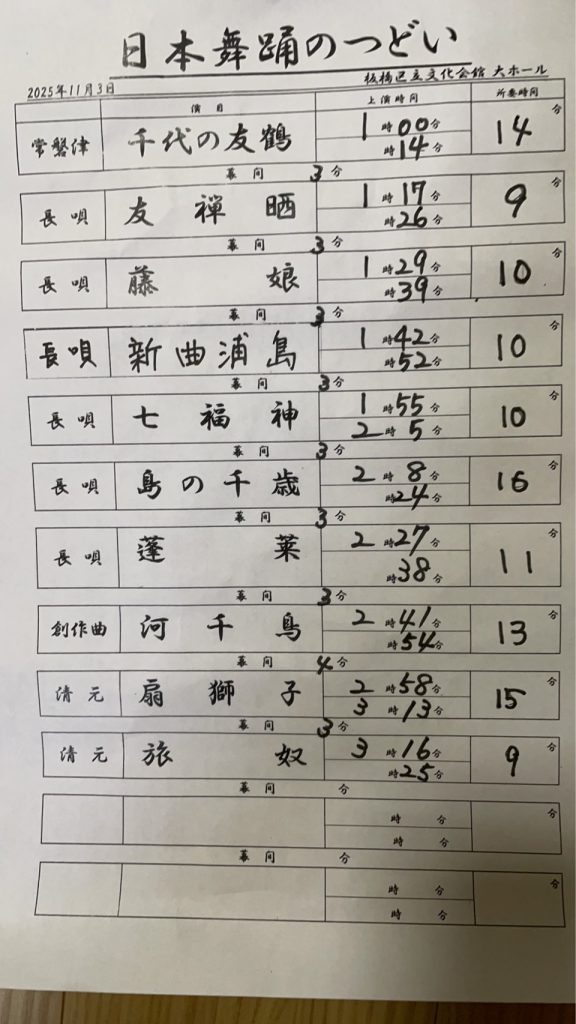 日本舞踊のつどい
2025年11月3日 板橋区立文化会館 大ホール
演目 上演時間 所要時間
常磐津 千代の友鶴 1時00分 14分
時14分
幕間 3分
長唄 友禅晒 1時17分 9分
時26分
幕間 3分
長唄 藤娘 1時29分 10分
時39分
幕間 3分
長唄 新曲浦島 1時42分 10分
時52分
幕間 3分
長唄 七福神 1時55分 10分
2時5分
幕間 3分
長唄 島の千歳 2時8分 16分
時24分
幕間 3分
長唄 蓬莱 2時27分 11分
時38分
幕間 3分
創作曲 河千鳥 2時41分 13分
時54分
幕間 4分
清元 扇獅子 2時58分 15分
3時13分
幕間 3分
清元 旅奴 3時16分 9分
時25分
幕間 分
時 分 分
時 分
幕間 分
時 分 分
時 分